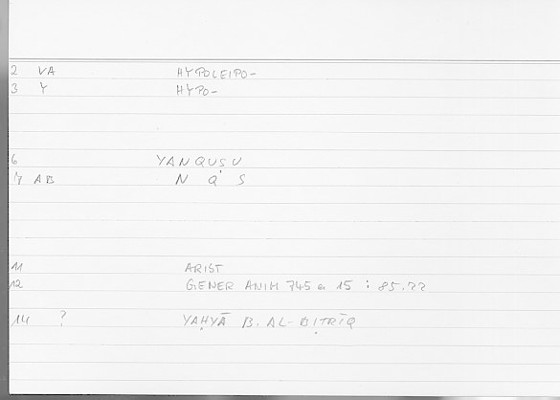 2 VA HYPOLEIPO-
3 Y HYPO-
6 YANQUṢU
7 AB N Q Ṣ
11 ARIST
12 GENER ANIM 745 a 15 : 85.22
14 ? YAḤYĀ B. AL-BIṬRĪQ